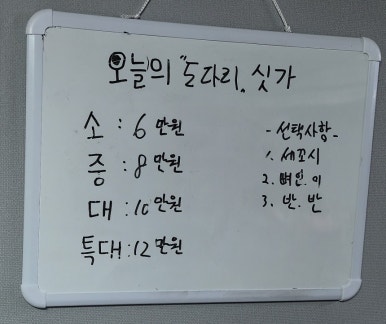 오늘의 "도다리" 싯가
소 : 6 만원
중 : 8 만원
대 : 10 만원
특대 : 12 만원
- 선택사항 -
1. 세꼬시
2. 뼈인.이
3. 반.반